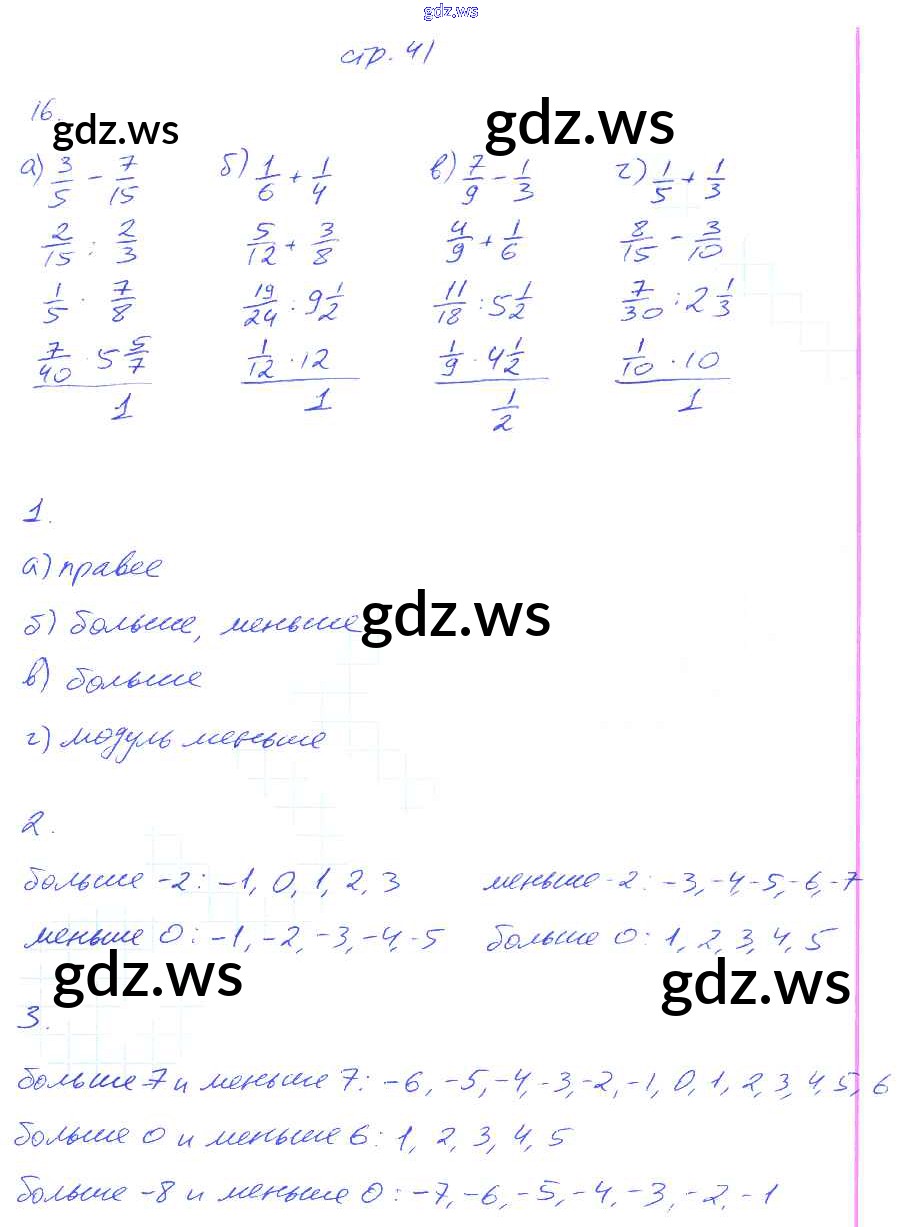 gdz.ws
стр. 41
16.
gdz.ws gdz.ws
а) 3/5 - 7/15 б) 1/6 + 1/4 в) 7/9 - 1/3 г) 1/5 + 1/3
2/15 : 2/3 5/12 + 3/8 4/9 + 1/6 8/15 - 3/10
1/5 · 7/8 19/24 : 9 1/2 11/18 : 5 1/2 7/30 : 2 1/3
7/40 · 5 5/7 1/12 · 12 1/9 · 4 1/2 1/10 · 10
1 1 1/2 1
1.
а) правее
б) больше, меньше
gdz.ws
в) больше
г) модуль меньше
2.
больше -2: -1, 0, 1, 2, 3 меньше -2: -3, -4, -5, -6, -7
меньше 0: -1, -2, -3, -4, -5 больше 0: 1, 2, 3, 4, 5
gdz.ws gdz.ws
3.
больше -7 и меньше 7: -6, -5, -4, -3, -2, -1, 0, 1, 2, 3, 4, 5, 6
больше 0 и меньше 6: 1, 2, 3, 4, 5
больше -8 и меньше 0: -7, -6, -5, -4, -3, -2, -1